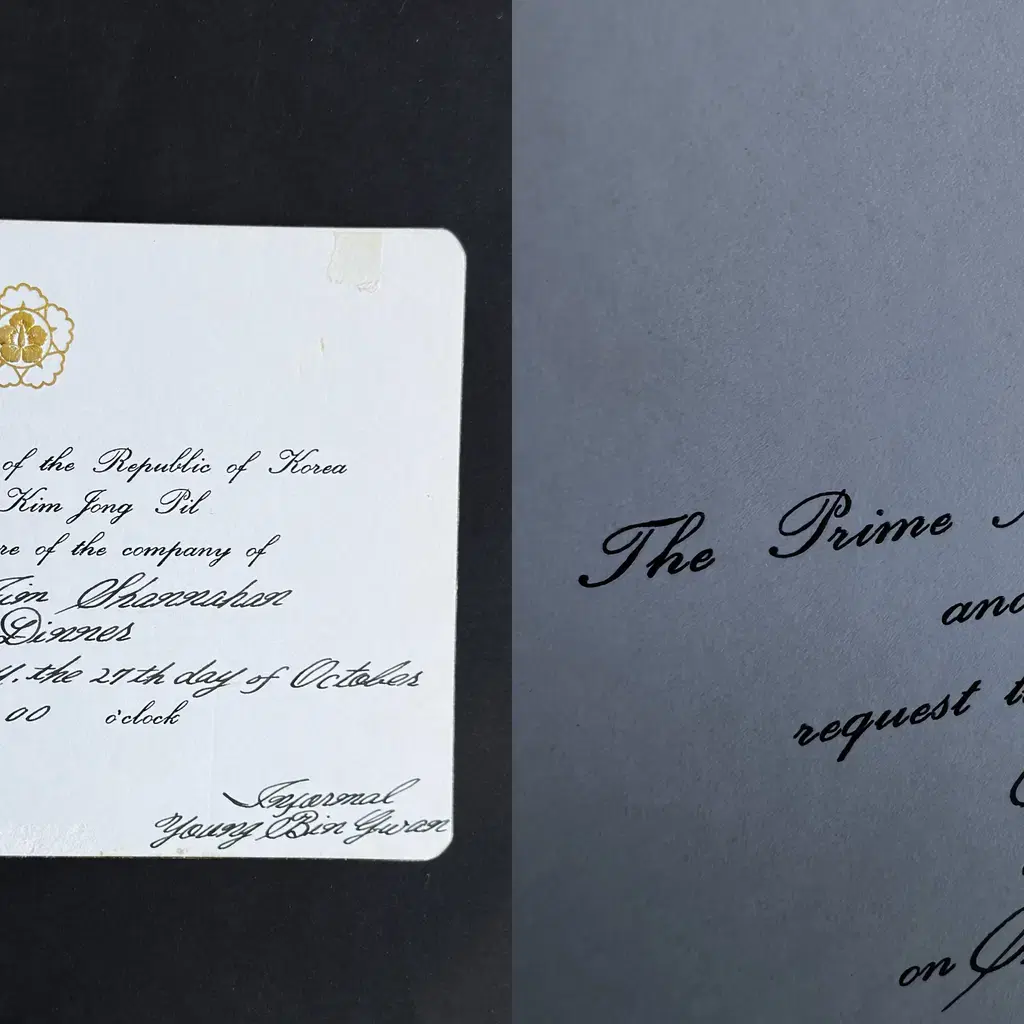 of the Republic of Korea
Kim Jong Pil
re of the company of
Jim Shannahan
Dinner
y, the 27th day of October
00 o'clock
Informal
Young Bin Gwan
The Prime
and
request
on